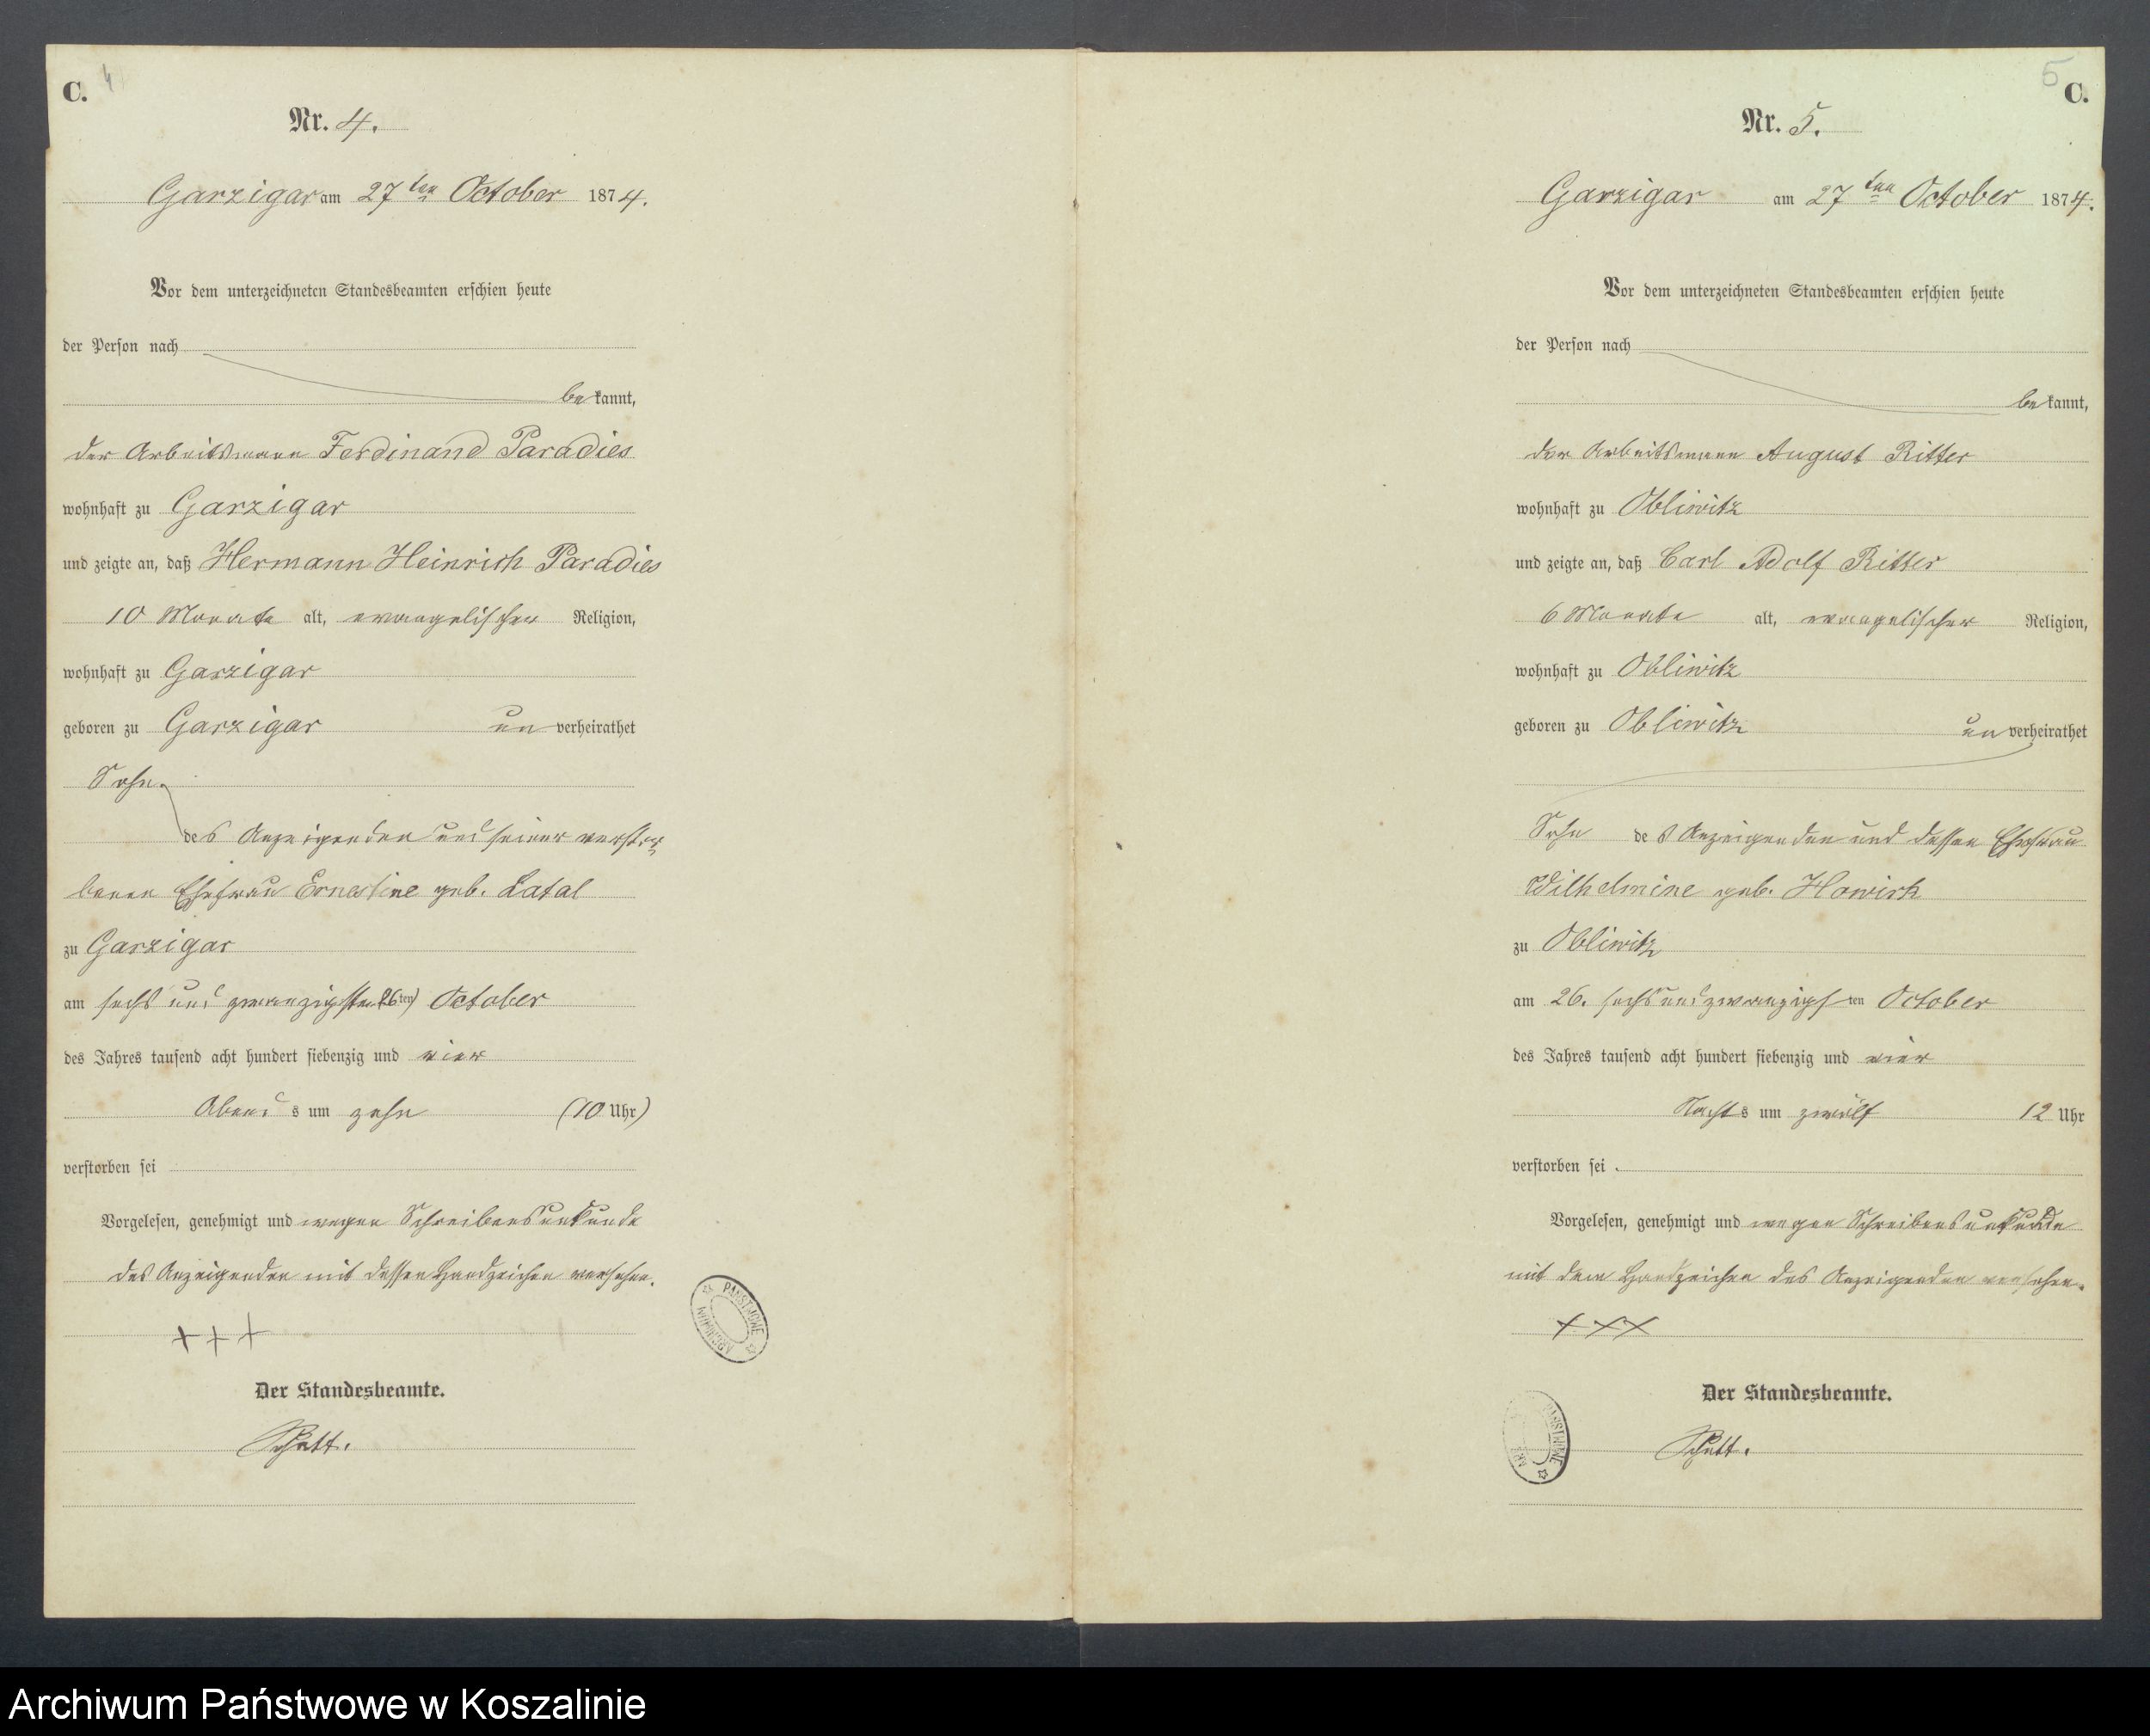 C. 4
Nr. 4.
Garzigar am 27ten October 1874.
Vor dem unterzeichneten Standesbeamten erschien heute
der Person nach
bekannt,
der Arbeitsmann Ferdinand Paradies
wohnhaft zu Garzigar
und zeigte an, daß Hermann Heinrich Paradies
10 Monate alt, evangelischer Religion,
wohnhaft zu Garzigar
geboren zu Garzigar unverheirathet
Sohn
des Anzeigenden und seiner verstor
benen Ehefrau Ernestine geb. Latal
zu Garzigar
am sechs und zwanzigsten (26ten) October
des Jahres tausend acht hundert siebenzig und vier
Abends um zehn (10 Uhr)
verstorben sei
Vorgelesen, genehmigt und wegen Schreibensunkunde
des Anzeigenden mit dessen Handzeichen versehen.
+++
Der Standesbeamte.
PAŃSTWOWE ARCHIWUM
5 C.
Nr. 5.
Garzigar am 27ten October 1874.
Vor dem unterzeichneten Standesbeamten erschien heute
der Person nach
bekannt,
der Arbeitsmann August Ritter
wohnhaft zu Obliwitz
und zeigte an, daß Carl Adolf Ritter
6 Monate alt, evangelischer Religion,
wohnhaft zu Obliwitz
geboren zu Obliwitz unverheirathet
Sohn des Anzeigenden und dessen Ehefrau
Wilhelmine geb. Howirk
zu Obliwitz
am 26. sechsundzwanzigsten October
des Jahres tausend acht hundert siebenzig und vier
Nachts um zwölf 12 Uhr
verstorben sei.
Vorgelesen, genehmigt und wegen Schreibensunkunde
mit dem Handzeichen des Anzeigenden versehen.
+++
Der Standesbeamte.
Archiwum Państwowe w Koszalinie